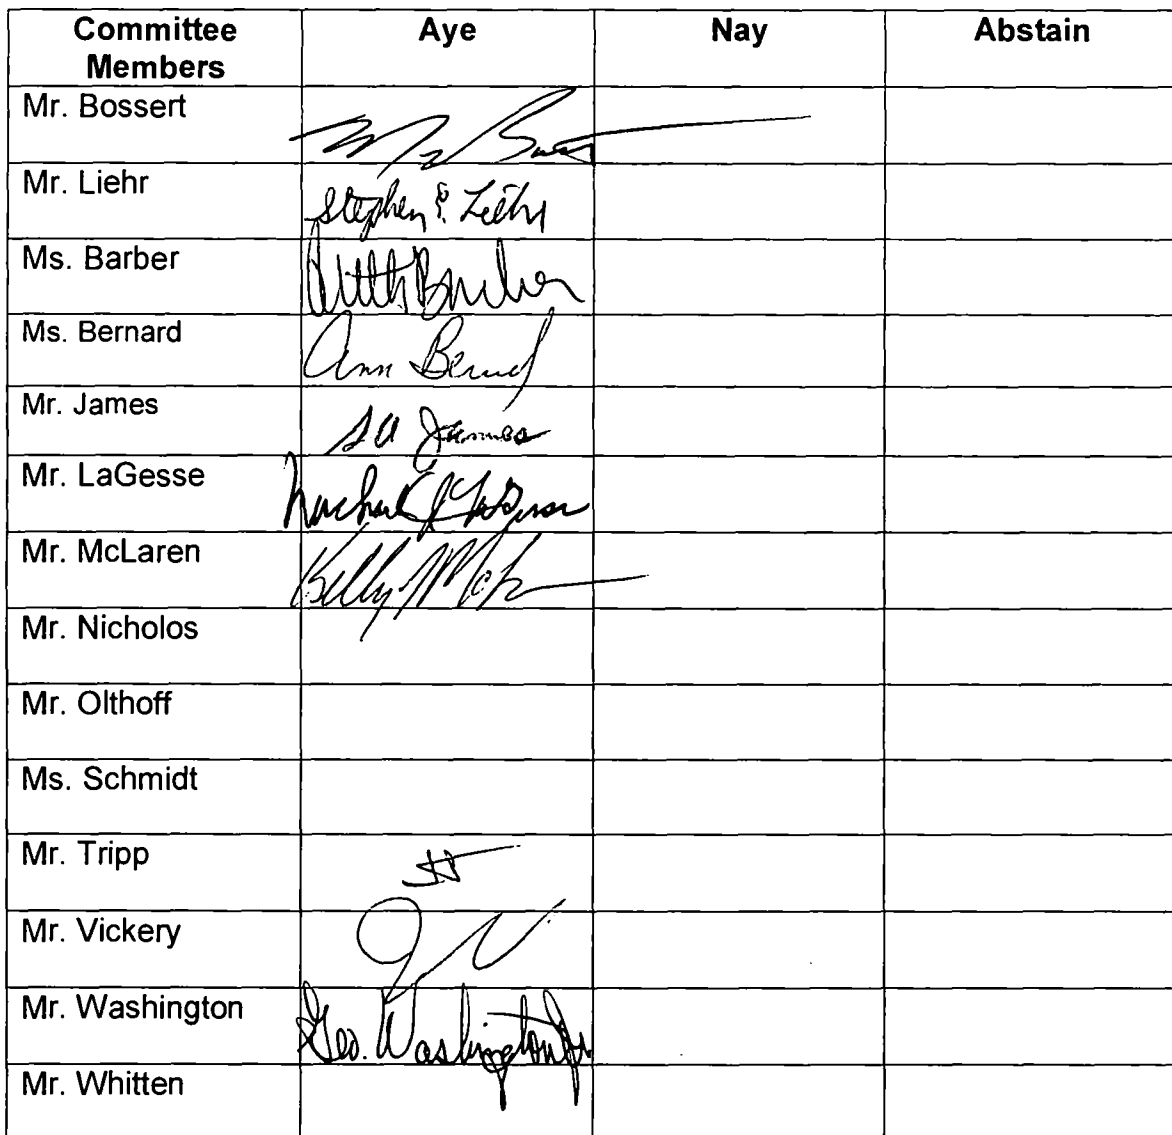 Committee Members Aye Nay Abstain
Mr. Bossert
Mr. Liehr Stephen E. Liehr
Ms. Barber Barber
Ms. Bernard Ann Bernard
Mr. James SA James
Mr. LaGesse Michael J LaGesse
Mr. McLaren Kelly McL
Mr. Nicholos
Mr. Olthoff
Ms. Schmidt
Mr. Tripp
Mr. Vickery
Mr. Washington Geo. Washington Jr
Mr. Whitten